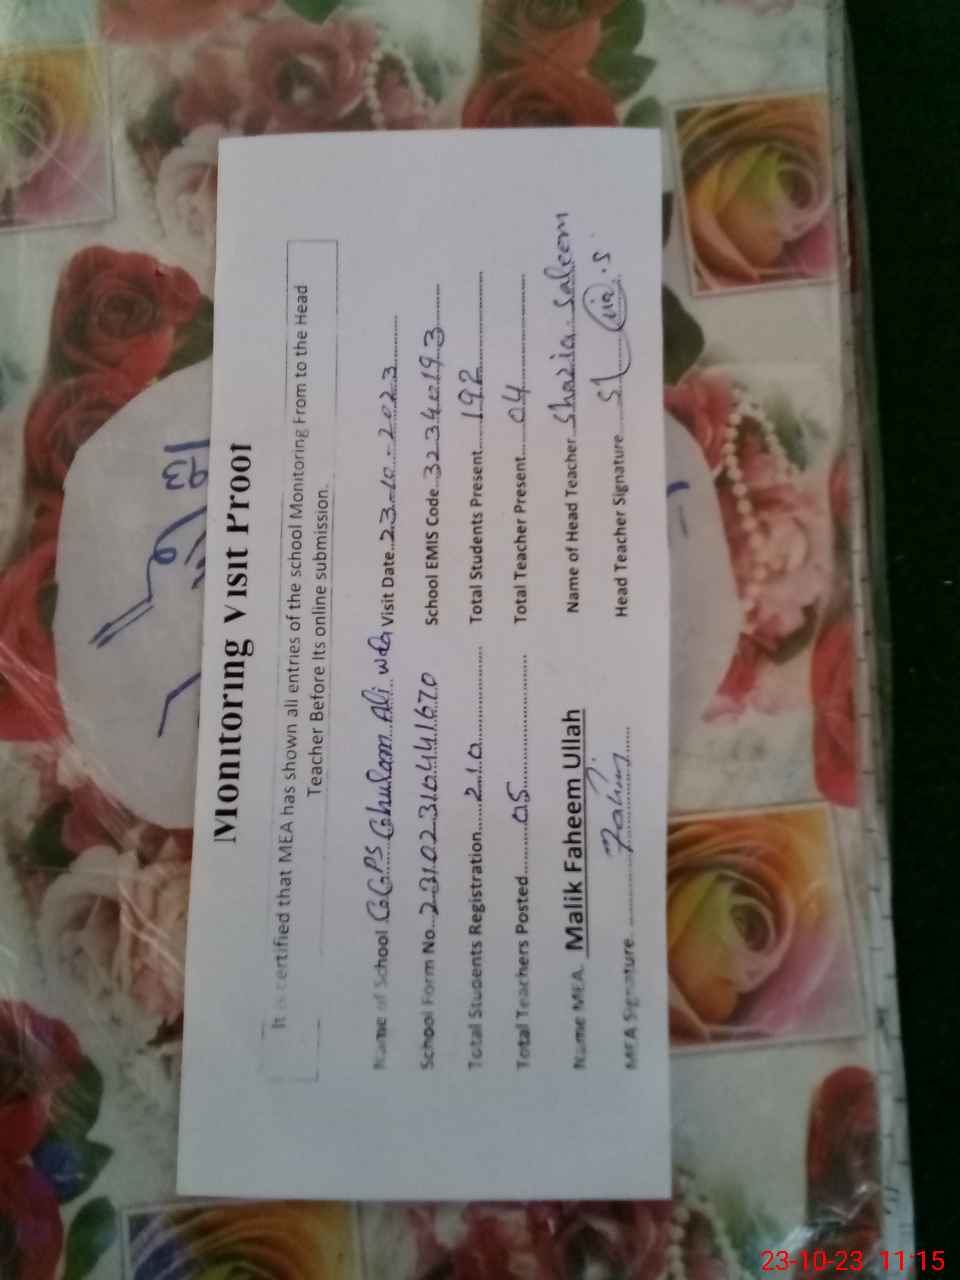 Monitoring Visit Proof
It is certified that MEA has shown all entries of the school Monitoring From to the Head
Teacher Before Its online submission.
Name of School GGPS Ghulam Ali Visit Date 23-10-2023
School Form No. School EMIS Code 32340193
Total Students Registration 210 Total Students Present 192
Total Teachers Posted 05 Total Teacher Present 04
Name MEA. Malik Faheem Ullah Name of Head Teacher Shazia Saleem
MEA Signature Fahim Head Teacher Signature
23-10-23 11:15